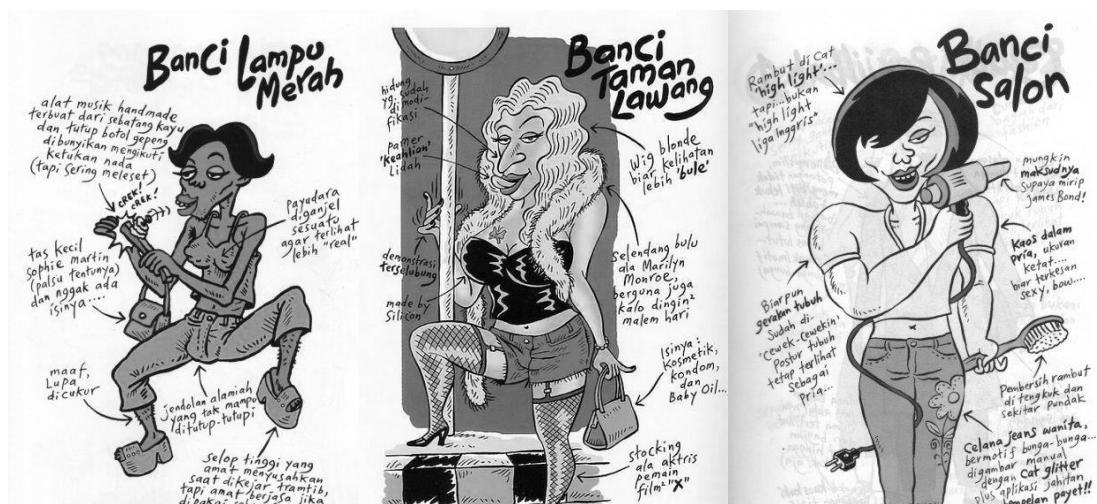 Banci Lampu
Merah
alat musik handmade
terbuat dari sebatang kayu
dan tutup botol gepeng
dibunyikan mengikuti
ketukan nada
(tapi sering meleset)
CREK!
CREK!
payudara
diganjel
sesuatu
agar terlihat
lebih "real"
tas kecil
sophie martin
(palsu tentunya)
dan nggak ada
isinya....
maaf,
Lupa
dicukur
jendolan alamiah
yang tak mampu
ditutup-tutupi
selop tinggi yang
amat menyusahkan
saat dikejar tramtib,
tapi amat berjasa jika
Banci
Taman
Lawang
hidung
yg. sudah
dimodi-
fikasi
pamer
'keahlian'
Lidah
demonstrasi
terselubung
made by
Silicon
Wig blonde
biar kelihatan
lebih 'bule'
Selendang bulu
ala Marilyn
Monroe,
berguna juga
kalo dingin2
malem hari
Isinya
Kosmetik,
kondom,
dan
Baby Oil...
stocking
ala aktris
pemain
film2 "X"
Banci
Salon
Rambut di Cat
'high light'...
tapi... bukan
"high light
liga Inggris"
mungkin
maksudnya
Supaya mirip
James Bond!
Kaos dalam
pria, ukuran
ketat...
biar terkesan
sexy, bow....
Biarpun
gerakan tubuh
Sudah di-
'cewek-cewekin'
Postur tubuh
tetap terlihat
sebagai
Pria...
Pembersih rambut
di tengkuk dan
sekitar pundak
Celana jeans wanita,
bermotif bunga-bunga...
digambar manual
dengan Cat glitter
plus aplikasi jahitan
tempelan payet!!